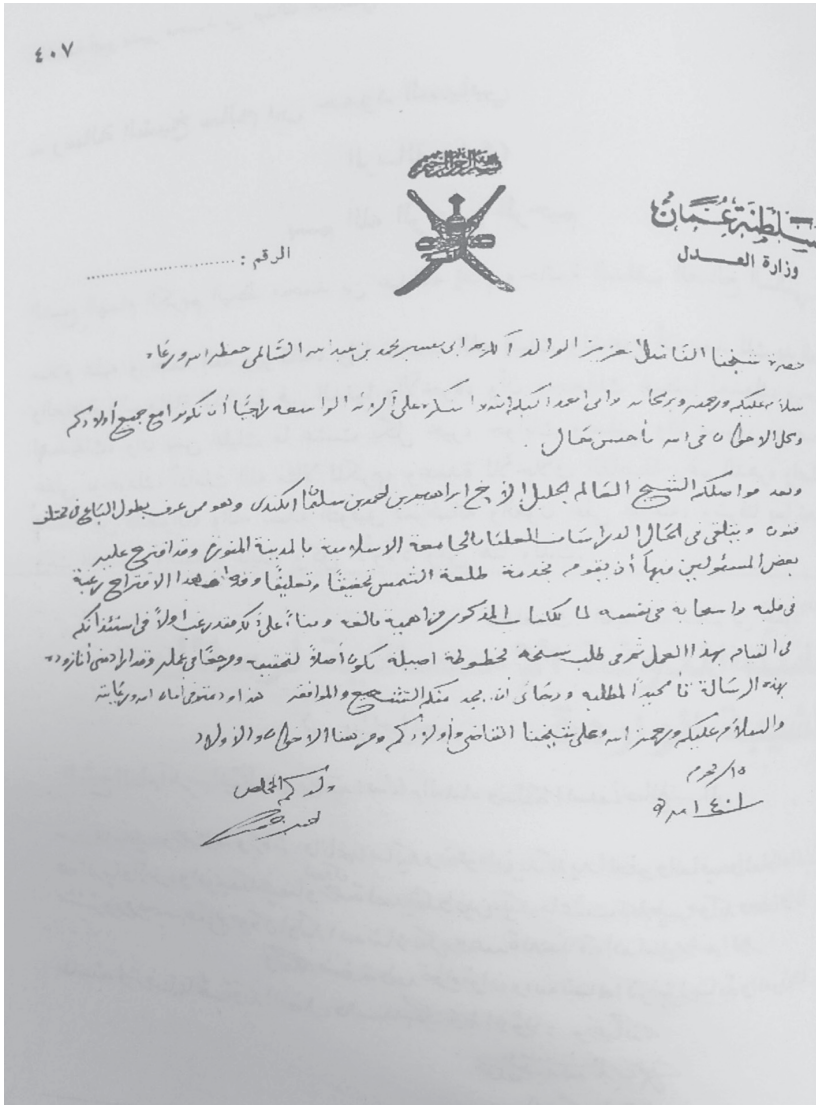 ٤٠٧
بسم الله الرحمن الرحيم
سلطنة عُمان
وزارة العدل
الرقم : ........................
حضرة شيخنا الفاضل العزيز الوالد الكريم ابي بشير محمد بن عبدالله السالمي حفظه الله ورعاه
سلام عليكم ورحمة الله وبركاته واني احمد اليكم الله واشكره على آلائه الواسعة راجيًا أن تكونوا مع جميع أولادكم
وكل الاخوان في الله بأحسن حال .
وبعد مواصلكم الشيخ العالم الجليل الأخ ابراهيم بن أحمد بن سليمان الكندي وهو ممن عرف بطول الباع في مختلف
فنون ويتلقى في الحال الدراسات العليا بالجامعة الاسلامية بالمدينة المنورة وقد اقترح عليه
بعض المسئولين فيها أن يقوم بخدمة طلعة الشمس تحقيقًا وتعليقًا وقد هذا الاقتراح رغبة
في قلبه واستجابة في نفسه لما للكتاب المذكور من اهمية بالغة وبناءً على ذلك فقد رغب اولاً في استئذانكم
في القيام بهذا العمل ثم في طلب نسخة مخطوطة اصيلة تكون أصلاً لتحقيقه ومرجعًا في عمله وقد اراد مني أن ازوده
بهذه الرسالة تأييدًا لمطلبه ورجائي أن يجد منكم التشجيع والموافقة هذا ودمتم في أمان الله ورعايته
والسلام عليكم ورحمة الله وعلى شيخنا القاضي وأولادكم ومن هنا الاخوان والأولاد
١٥ محرم
١٤٠١ هـ
ولدكم المخلص